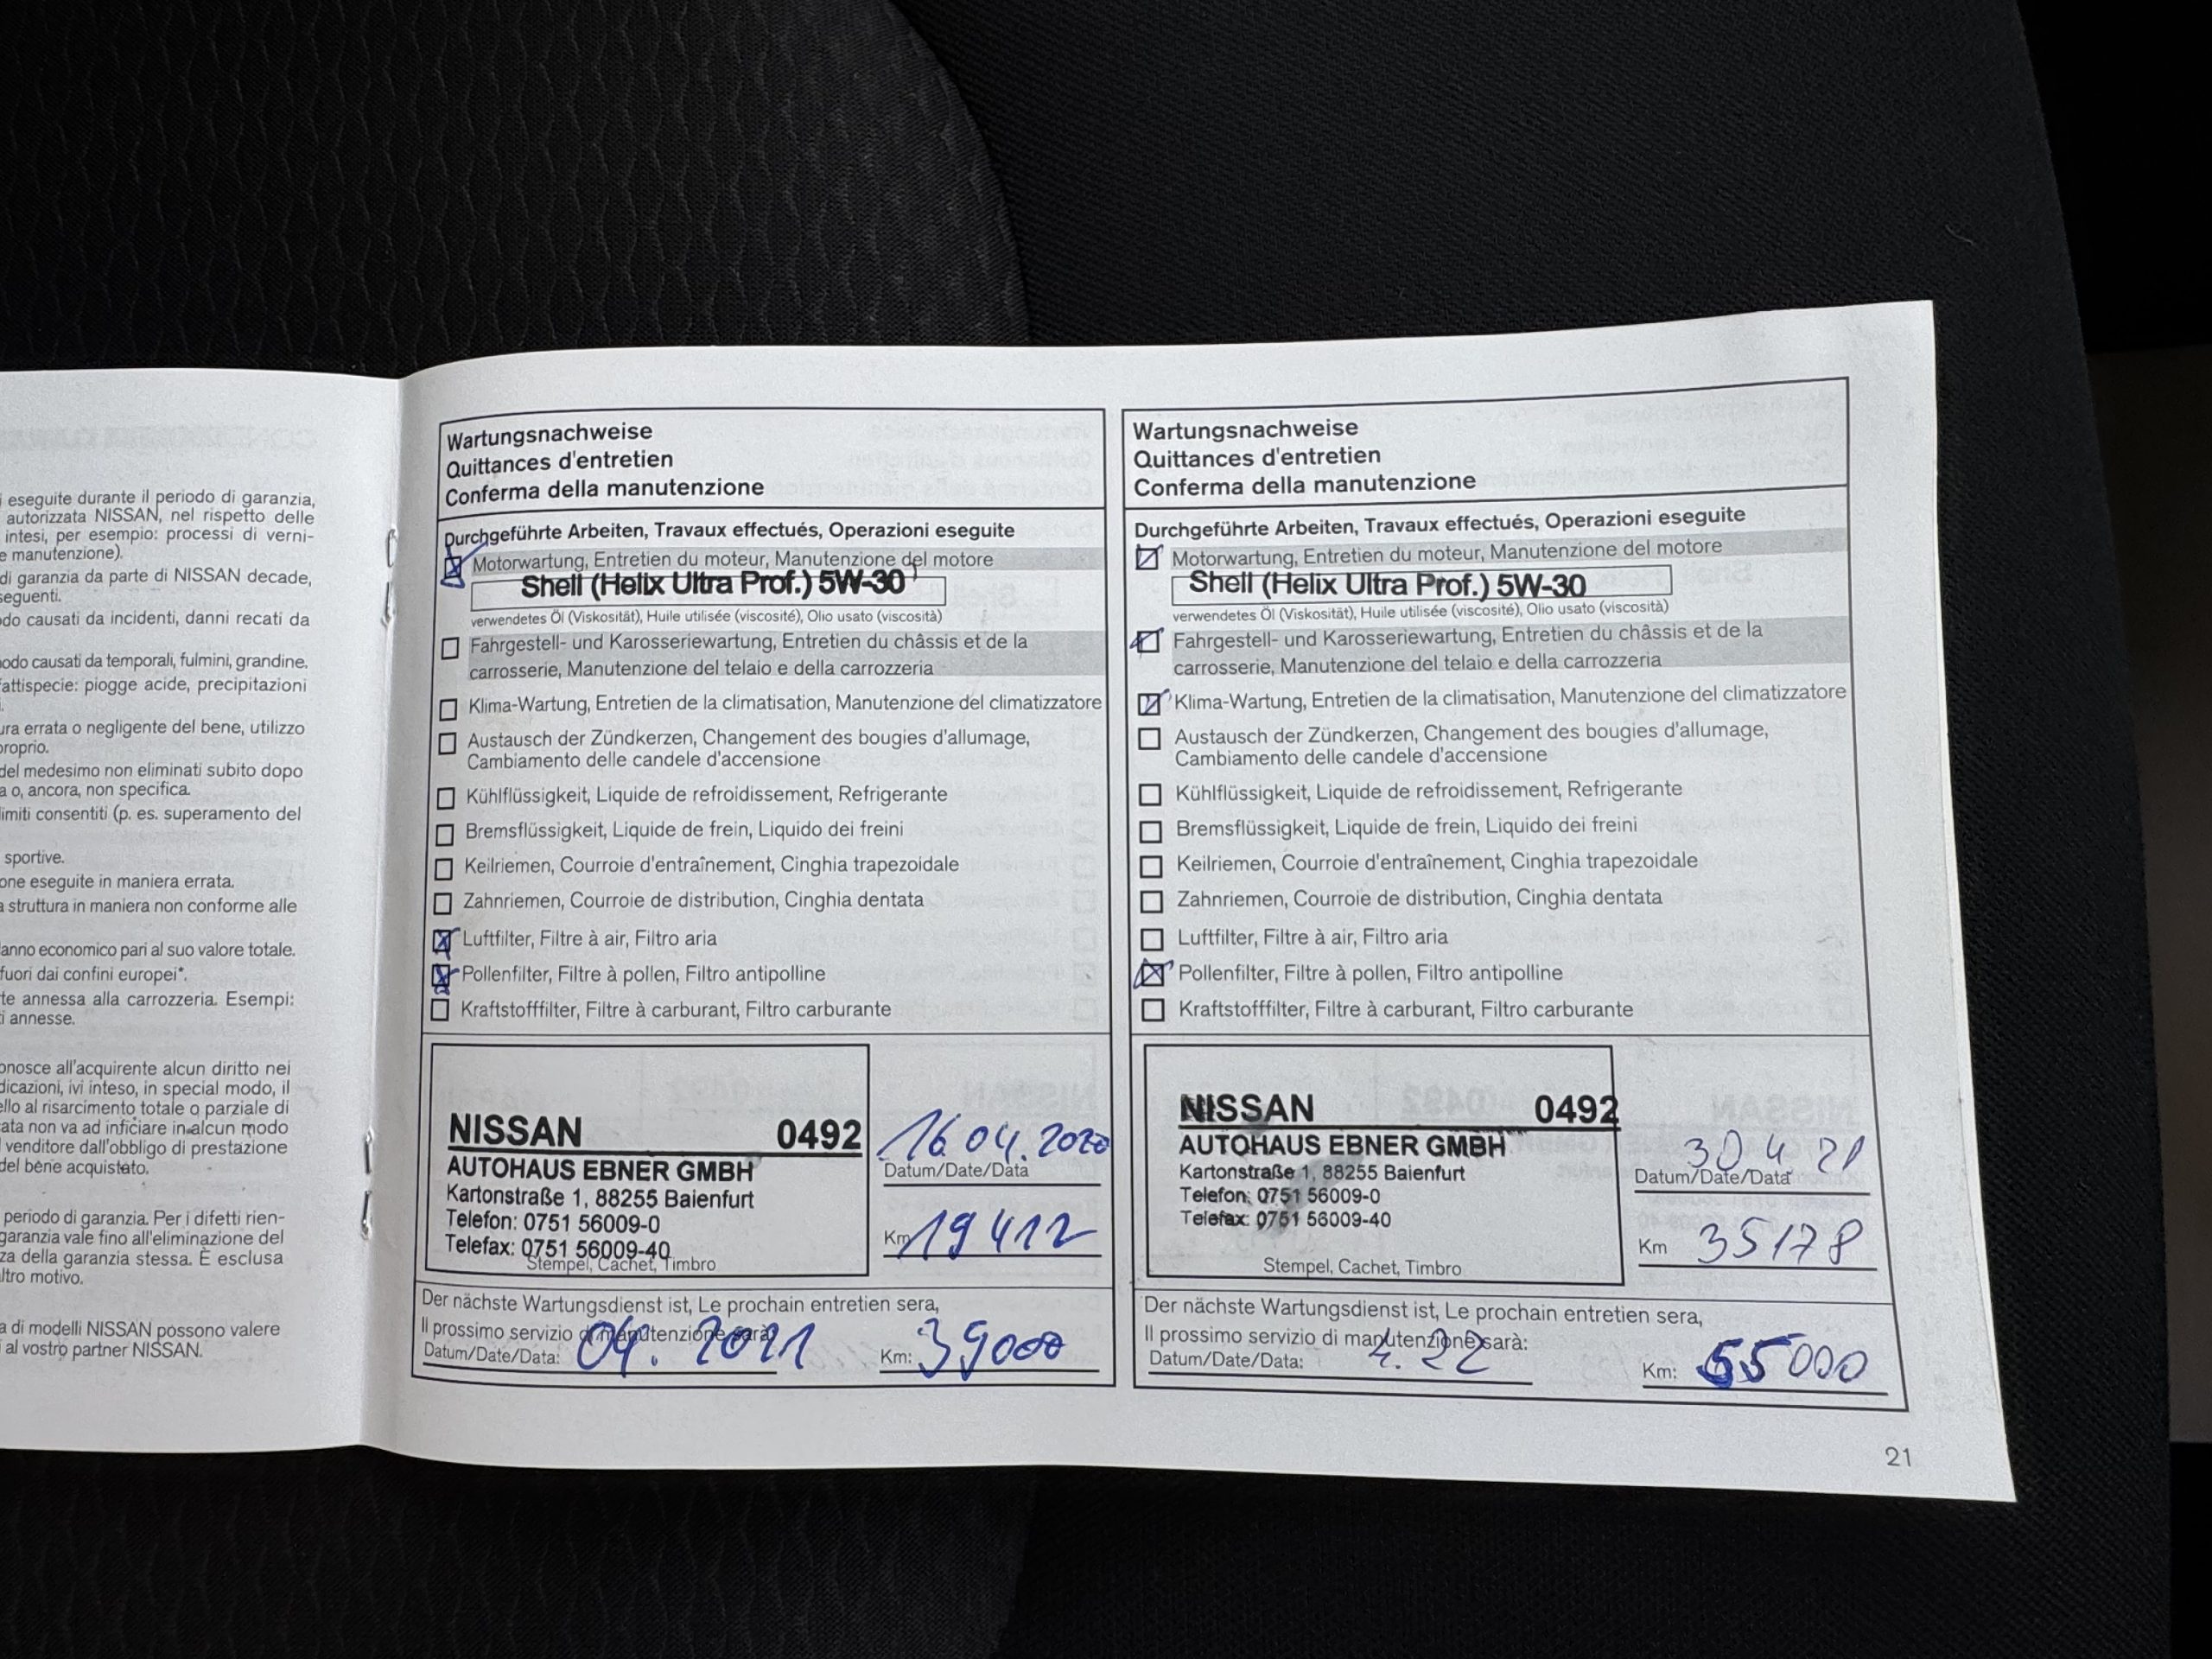 i eseguite durante il periodo di garanzia,
autorizzata NISSAN, nel rispetto delle
intesi, per esempio: processi di verni-
e manutenzione).
di garanzia da parte di NISSAN decade,
seguenti.
do causati da incidenti, danni recati da
odo causati da temporali, fulmini, grandine.
attispecie: piogge acide, precipitazioni
ura errata o negligente del bene, utilizzo
proprio.
del medesimo non eliminati subito dopo
a o, ancora, non specifica.
limiti consentiti (p. es. superamento del
sportive.
one eseguite in maniera errata.
a struttura in maniera non conforme alle
anno economico pari al suo valore totale.
fuori dai confini europei*.
te annessa alla carrozzeria. Esempi:
i annesse.
onosce all'acquirente alcun diritto nei
dicazioni, ivi inteso, in special modo, il
ello al risarcimento totale o parziale di
ata non va ad inficiare in alcun modo
l venditore dall'obbligo di prestazione
del bene acquistato.
periodo di garanzia. Per i difetti rien-
garanzia vale fino all'eliminazione del
za della garanzia stessa. È esclusa
ltro motivo.
a di modelli NISSAN possono valere
al vostro partner NISSAN.
Wartungsnachweise
Quittances d'entretien
Conferma della manutenzione
Durchgeführte Arbeiten, Travaux effectués, Operazioni eseguite
Motorwartung, Entretien du moteur, Manutenzione del motore
Shell (Helix Ultra Prof.) 5W-30
verwendetes Öl (Viskosität), Huile utilisée (viscosité), Olio usato (viscosità)
Fahrgestell- und Karosseriewartung, Entretien du châssis et de la
carrosserie, Manutenzione del telaio e della carrozzeria
Klima-Wartung, Entretien de la climatisation, Manutenzione del climatizzatore
Austausch der Zündkerzen, Changement des bougies d'allumage,
Cambiamento delle candele d'accensione
Kühlflüssigkeit, Liquide de refroidissement, Refrigerante
Bremsflüssigkeit, Liquide de frein, Liquido dei freini
Keilriemen, Courroie d'entraînement, Cinghia trapezoidale
Zahnriemen, Courroie de distribution, Cinghia dentata
Luftfilter, Filtre à air, Filtro aria
Pollenfilter, Filtre à pollen, Filtro antipolline
Kraftstofffilter, Filtre à carburant, Filtro carburante
NISSAN 0492
AUTOHAUS EBNER GMBH
Kartonstraße 1, 88255 Baienfurt
Telefon: 0751 56009-0
Telefax: 0751 56009-40
Stempel, Cachet, Timbro
16.04.2020
Datum/Date/Data
Km 19412
Der nächste Wartungsdienst ist, Le prochain entretien sera,
Il prossimo servizio di manutenzione sarà:
Datum/Date/Data: 04. 2021 Km: 39000
Wartungsnachweise
Quittances d'entretien
Conferma della manutenzione
Durchgeführte Arbeiten, Travaux effectués, Operazioni eseguite
Motorwartung, Entretien du moteur, Manutenzione del motore
Shell (Helix Ultra Prof.) 5W-30
verwendetes Öl (Viskosität), Huile utilisée (viscosité), Olio usato (viscosità)
Fahrgestell- und Karosseriewartung, Entretien du châssis et de la
carrosserie, Manutenzione del telaio e della carrozzeria
Klima-Wartung, Entretien de la climatisation, Manutenzione del climatizzatore
Austausch der Zündkerzen, Changement des bougies d'allumage,
Cambiamento delle candele d'accensione
Kühlflüssigkeit, Liquide de refroidissement, Refrigerante
Bremsflüssigkeit, Liquide de frein, Liquido dei freini
Keilriemen, Courroie d'entraînement, Cinghia trapezoidale
Zahnriemen, Courroie de distribution, Cinghia dentata
Luftfilter, Filtre à air, Filtro aria
Pollenfilter, Filtre à pollen, Filtro antipolline
Kraftstofffilter, Filtre à carburant, Filtro carburante
NISSAN 0492
AUTOHAUS EBNER GMBH
Kartonstraße 1, 88255 Baienfurt
Telefon: 0751 56009-0
Telefax: 0751 56009-40
Stempel, Cachet, Timbro
30 4 21
Datum/Date/Data
Km 35178
Der nächste Wartungsdienst ist, Le prochain entretien sera,
Il prossimo servizio di manutenzione sarà:
Datum/Date/Data: 4. 22 Km: 55000
21